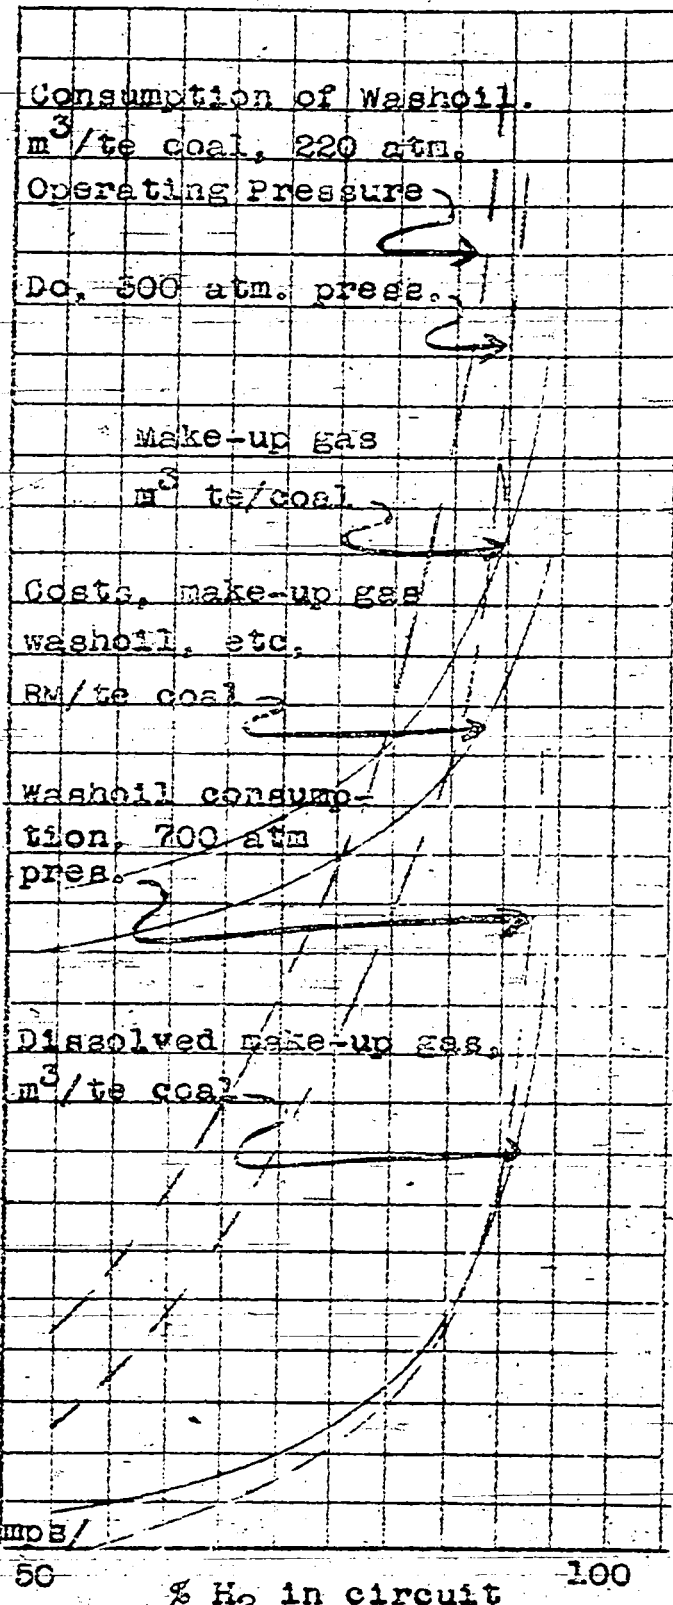 Consumption of Washoil.
m³/te coal, 220 atm.
Operating Pressure
Do, 300 atm. press.
Make-up gas
m³ te/coal
Costs, make-up gas
washoil, etc,
RM/te coal
Washoil consump-
tion, 700 atm
pres.
Dissolved make-up gas,
m³/te coal
mps/
50 100
% H₂ in circuit